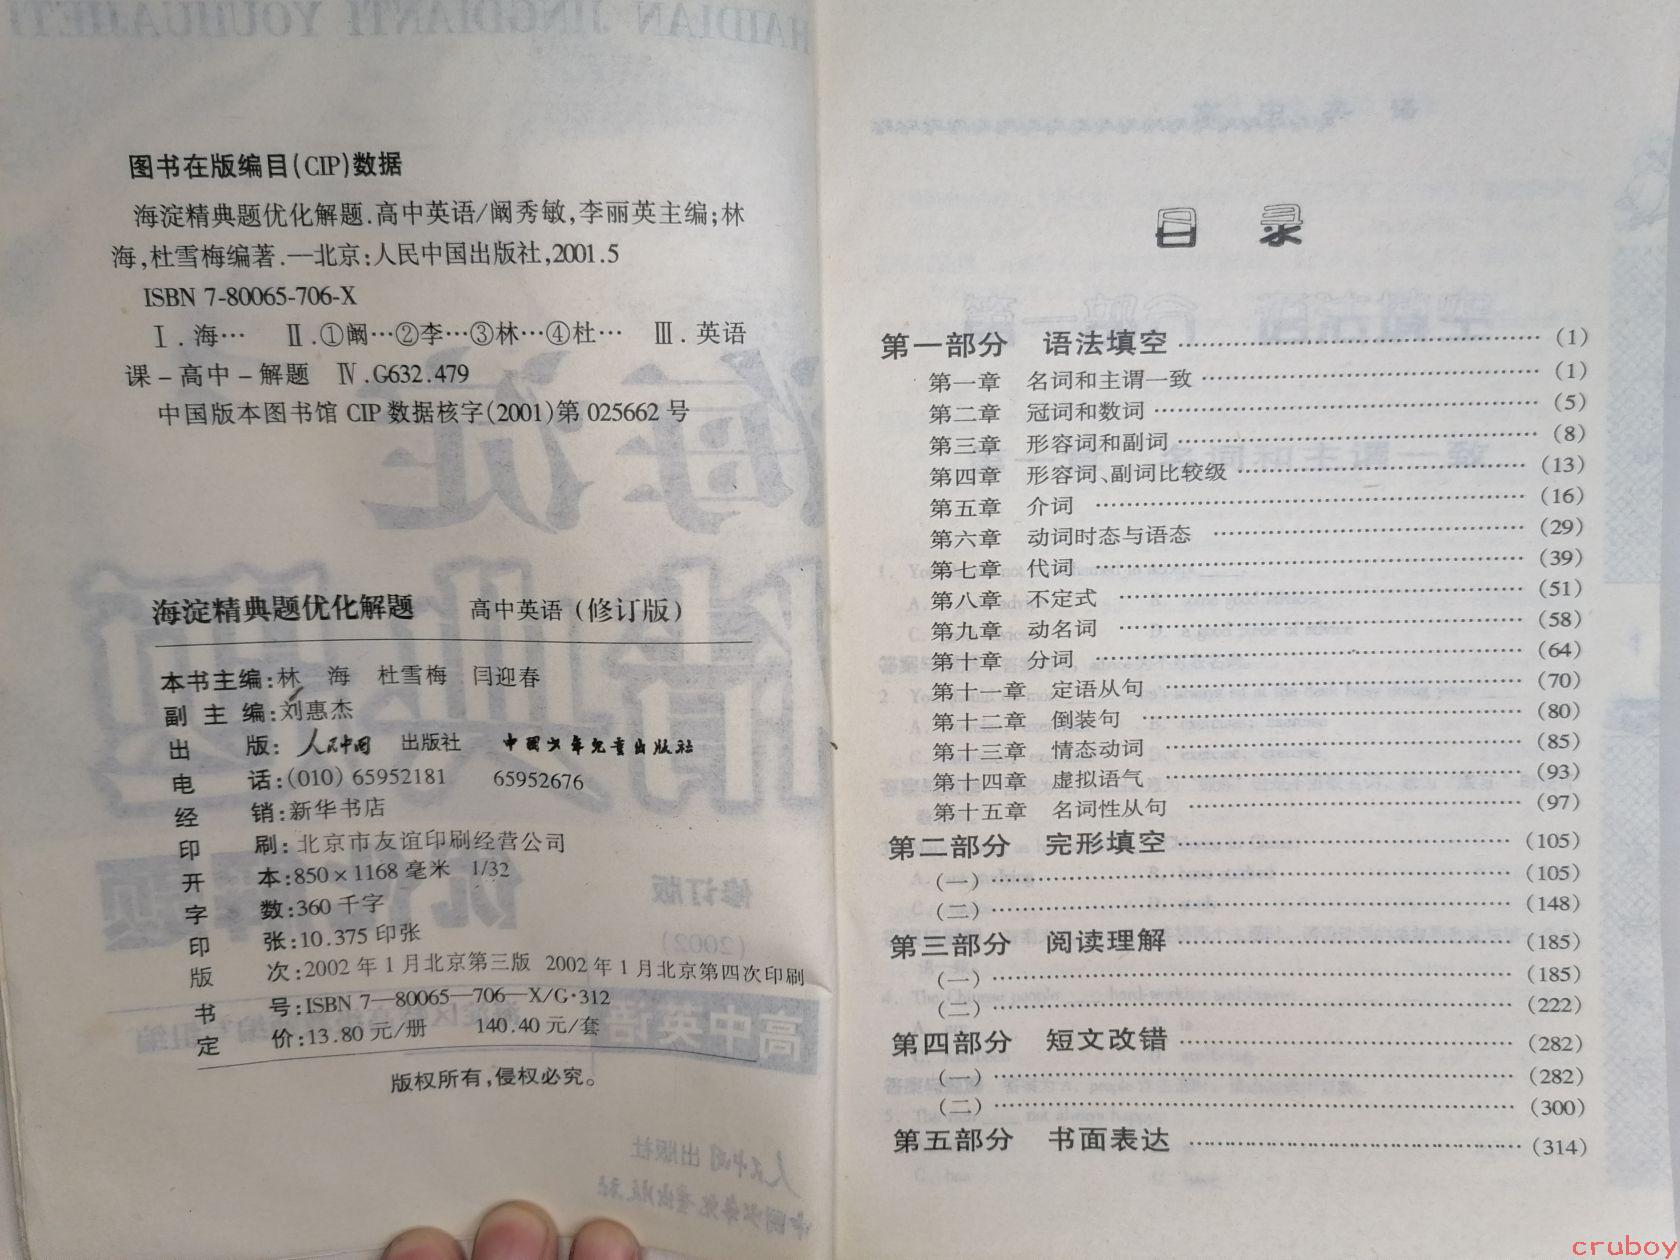 图书在版编目(CIP)数据
海淀精典题优化解题.高中英语/阚秀敏,李丽英主编;林
海,杜雪梅编著.—北京:人民中国出版社,2001.5
ISBN 7-80065-706-X
Ⅰ.海… Ⅱ.①阚…②李…③林…④杜… Ⅲ.英语
课－高中－解题 Ⅳ.G632.479
中国版本图书馆 CIP 数据核字(2001)第 025662 号
海淀精典题优化解题 高中英语(修订版)
本书主编:林 海 杜雪梅 闫迎春
副主编:刘惠杰
出 版:人民中国 出版社 中国少年儿童出版社
电 话:(010)65952181 65952676
经 销:新华书店
印 刷:北京市友谊印刷经营公司
开 本:850×1168毫米 1/32
字 数:360千字
印 张:10.375印张
版 次:2002年1月北京第三版 2002年1月北京第四次印刷
书 号:ISBN 7—80065—706—X/G·312
定 价:13.80元/册 140.40元/套
版权所有,侵权必究。
目 录
第一部分 语法填空 …… (1)
第一章 名词和主谓一致 …… (1)
第二章 冠词和数词 …… (5)
第三章 形容词和副词 …… (8)
第四章 形容词、副词比较级 …… (13)
第五章 介词 …… (16)
第六章 动词时态与语态 …… (29)
第七章 代词 …… (39)
第八章 不定式 …… (51)
第九章 动名词 …… (58)
第十章 分词 …… (64)
第十一章 定语从句 …… (70)
第十二章 倒装句 …… (80)
第十三章 情态动词 …… (85)
第十四章 虚拟语气 …… (93)
第十五章 名词性从句 …… (97)
第二部分 完形填空 …… (105)
(一) …… (105)
(二) …… (148)
第三部分 阅读理解 …… (185)
(一) …… (185)
(二) …… (222)
第四部分 短文改错 …… (282)
(一) …… (282)
(二) …… (300)
第五部分 书面表达 …… (314)
cruboy